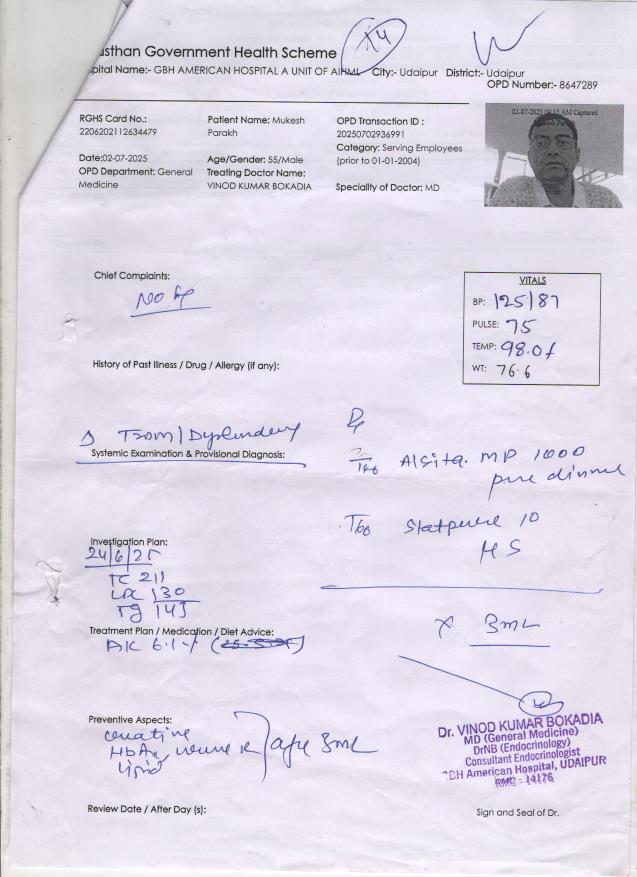 x4
sthan Government Health Scheme
pital Name:- GBH AMERICAN HOSPITAL A UNIT OF AIHML City:- Udaipur District:- Udaipur
OPD Number:- 8647289
RGHS Card No.:
2206202112634479
Patient Name: Mukesh
Parakh
OPD Transaction ID :
20250702936991
Category: Serving Employees
(prior to 01-01-2004)
Date:02-07-2025
OPD Department: General
Medicine
Age/Gender: 55/Male
Treating Doctor Name:
VINOD KUMAR BOKADIA
Speciality of Doctor: MD
02-07-2025 09:15 AM Captured
Mukesh Parakh
Chief Complaints:
NO
VITALS
BP: 125/87
PULSE: 75
TEMP: 98.0f
WT: 76.6
History of Past Illness / Drug / Allergy (if any):
Systemic Examination & Provisional Diagnosis:
Rx
Tab MP 1000
dinner
Tab 10
HS
Investigation Plan:
24/6/25
TC 211
130
TG 143
Treatment Plan / Medication / Diet Advice:
6.1
x 3m
Preventive Aspects:
HbA1c
lipid
3m
Dr. VINOD KUMAR BOKADIA
MD (General Medicine)
DrNB (Endocrinology)
Consultant Endocrinologist
GBH American Hospital, UDAIPUR
RMC - 14176
Review Date / After Day (s):
Sign and Seal of Dr.